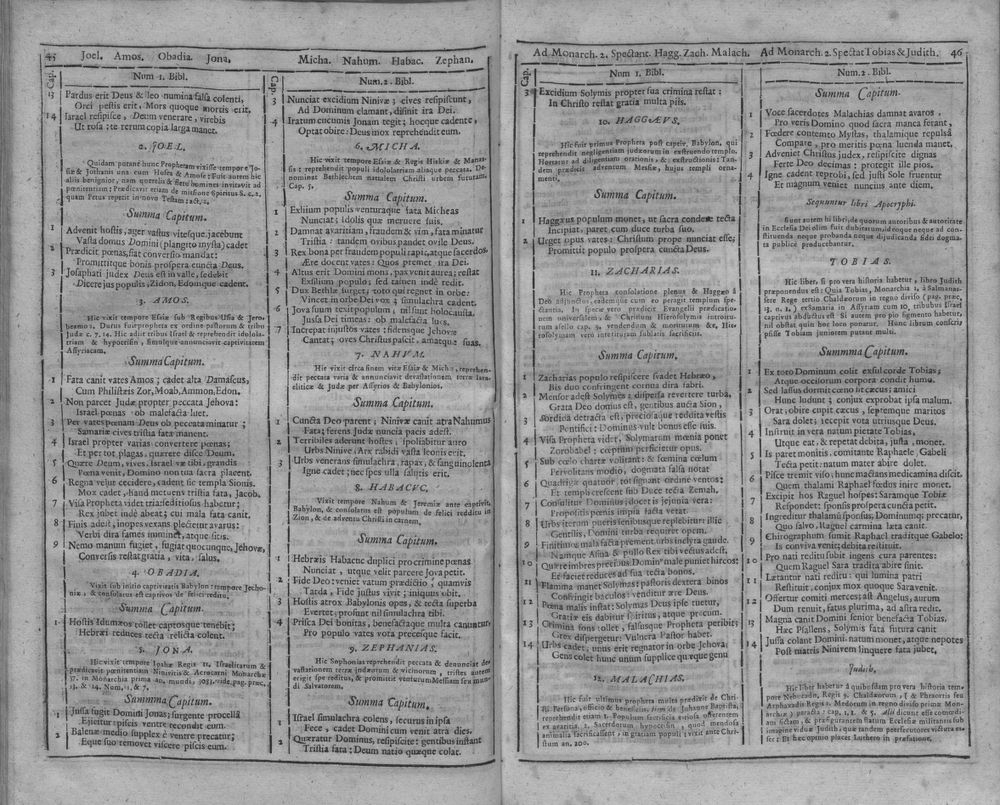 45 Joel. Amos. Obadia. Jona,
Cap.
Num 1. Bibl.
13 Pardus erit Deus & leo numina falsa colenti,
Orci pestis erit, Mors quoque mortis erit.
14 Israel resipisce, Deum venerare, virebis
Ut rosa: te rerum copia larga manet.
2. JOEL.
Quidam putant hunc Prophetam vixisse tempore Jo-
siæ & Jothanis una cum Hosea & Amose: Fuit autem hic
aliis benignior, nam querelis & fletu homines invitavit ad
pœnitentiam: Prædicavit etiam de missione Spiritus S. c. 2.
quam Petus repetit in novo Testam: act. 2,
Summa Capitum.
1 Advenit hostis, ager vastus vitesque jacebunt
Vasta domus Domini (plangito mysta) cadet
2 Prædicit pœnas, fiat conversio mandat:
Promittitque bonis prospera cuncta Deus.
3 Josaphati judex Deus est in valle, sedebit
Dicere jus populis, Zidon, Edomque cadent.
3. AMOS.
Hic vixit tempore Esaiæ sub Regibus Usia & Jero-
beamo 2. Durus fuit propheta ex ordine pastorum & tribu
Juda c. 7, 14. Hic tribus Israel reprehendit idolola-
triam & hypocrisin, simulque annunciavit captivitatem
Assyriacam.
Summa Capitum.
1 Fata canit vates Amos; cadet alta Damascus,
Cum Philisteis Zor, Moab, Ammon, Edon.
2 Non parcet Judæ propter peccata Jehova:
Israel pœnas ob malefacta luet.
3 Per vates pœnam Deus ob peccata minatur;
Samariæ cives tristia fata manent.
4 Israel propter varias convertere pœnas;
Et per tot plagas, quærere disce Deum.
5 Quære Deum, vives, Israel væ tibi, grandis
Pœna venit, Domino non tua sacra placent.
6 Regna velut cecidere, cadent sic templa Sionis.
Mox cadet, haud metuens tristia fata, Jacob.
7 Visa Propheta videt trias seditiosus habetur;
Rex jubet inde abeat; cui mala fata canit.
8 Finis adeit, inopes vexans plectetur avarus:
Verbi dira fames iuminet, atque sitis.
9 Nemo manum fugiet, fugiat quocunque, Jehovæ,
Conversis restat gratia, vita, salus.
4. OBADIA.
Vixit sub initio captivitatis Babylon: tempore Jecho-
niæ, & consolatus est captivos de felici reditu,
Summa Capitum.
1. Hostis Idumæos tollet captosque tenebit;
Hebræi reduces tecta relicta colent.
5. JONA.
Hic vixit tempore Joahæ Regis 11, Israelitarum &
prædicavit pœnitentiam Ninivitis & Acrocarni Monarchæ
37. in Monarchia prima ao, mundi 3033. vide pag. præc,
13, & 14. Num, 1, & 7,
Summma Capitum.
1 Jussa fugit Domini Jonas; surgente procellâ
Ejicitur: piscis ventre recondit eum.
2 Balenæ medio supplex è ventre precatur;
Eque suo removet viscere piscis eum.
Micha. Nahum. Habac. Zephan.
Cap.
Num. 2. Bibl.
3 Nunciat excidium Ninivæ; cives resipiscunt,
Ad Dominum clamant, desinit ira Dei.
4 Iratum cucumis Jonam tegit; hocque cadente,
Optat obire: Deus mox reprehendit eum.
6. MICHA.
Hic vixit tempore Esaiæ & Regis Hiskiæ & Manas-
sis: reprehendit populi idololatriam aliaque peccata. De-
nominat Bethlechem natalem Christi urbem futuram.
Cap. 5.
Summa Capitum.
1 Exilium populis venturaque fata Micheas
Nunciat; idolis quæ meruere suis.
2 Damnat avaritiam, fraudem & vim, fata minatur
Tristia: tandem ovibus pandet ovile Deus.
3 Rex bona per fraudem populi rapit, atque sacerdos
Ære docent vates: Quos premet ira Dei.
4 Altus erit Domini mons, pax venit aurea; restat
Exilium populo; sed tamen inde redit.
5 Dux Bethlæ surget; toto qui regnet in orbe:
Vincet in orbe Dei vox; simulachra cadent.
6 Jova suum excit populum, nil sunt holocausta,
Jussa Dei timeas: ob malefacta lues.
7 Increpat injustos vates: fidensque Jehovæ
Cantat; oves Christus pascit, amatque suas.
7. NAHUM.
Hic vixit circa finem vitæ Esaiæ & Michæ, reprehen-
dit peccata varia & annunciat devastationem terræ Isra-
eliticæ & Judæ per Assyrios & Babylonios.
Summa Capitum.
1 Cuncta Deo parent; Ninivæ canit atra Nahumus
Fata; ferens Judæ nuncia pacis adest.
2 Terribiles aderunt hostes, spoliabitur auro
Urbs Ninive. Arx rabidi vasta leonis erit.
3 Urbs venerans simulachra, rapax, & sanguinolenta
Igne cadet; nec spes ulla salutis erit.
8. HABACUC.
Vixit tempore Nahum & Jeremiæ ante captivit.
Babylon, & consolatus est populum de felici reditu in
Zion, & de adventu Christi in carnem,
Summa Capitum.
1 Hebræis Habacuc duplici pro crimine pœnas
Nunciat, utque velit parcere Jova petit.
2 Fide Deo: veniet vatum prædictio, quamvis
Tarda, Fide justus vivit; iniquus obit.
3 Hostis atrox Babylonis opes, & tecta superba
Evertet; prosunt nil simulachra tibi.
4 Prisca Dei bonitas, benefactaque multa canuntur,
Pro populo vates vota precesque facit.
9. ZEPHANIAS.
Hic Sophonias reprehendit peccata & denunciat de-
vastationem terræ judæorum & wicinorum, tristes autem
erigit spe reditus, & promittit venturum Messiam seu mun-
di Salvatorem.
Summa Capitum.
1 Israel simulachra colens, securus in ipsa
Fece, cadet Domini cum venit atra dies.
2 Quæratur Dominus, resipiscite: gentibus instant
Tristia fata: Deum natio quæque colat.
Ad Monarch. 2. Spectant. Hagg. Zach. Malach.
Cap.
Num 1. Bibl.
3 Excidium Solymis propter sua crimina restat:
In Christo restat gratia multa piis.
10. HAGGÆUS.
Hic fuit primus Propheta post captiv, Babylon, qui
reprehendit negligentiam judæorum in exstruendo templo.
Hortatur ad diligentiam orationis, & exstructionis: Tan-
dem prædicit adventum Messiæ, hujus templi orna-
menti,
Summa Capitum.
1 Haggæus populum monet, ut sacra condere tecta
Incipiat, paret cum duce turba suo.
2 Urget opus vates: Christum prope nunciat esse;
Promittit populo prospera cuncta Deus.
11. ZACHARIAS.
Hic Propheta consolatione plenus & Haggæo à
Deo adjunctus, eademque cum eo peragit templum spe-
ctantia, In specie vero prædicit Evangelii prædicatio-
nem universalem; & Christum Hierosolymis introitu-
rum asello cap. 9, vendendum & moriturum &c, Hie-
rosolymam vero interituram sublatis sacrificiis.
Summa Capitum.
1 Zacharias populo resipiscere svadet Hebræo,
Bis duo confringent cornua dira fabri.
2 Mensor adest Solymæs; dispersa revertere turba,
Grata Deo domus est, gentibus aucta Sion,
3 Sordida detracta est, preciosaque reddita vestis
Pontifici: Dominus vult bonus esse suis.
4 Visa Propheta videt, Solymarum mœnia ponet
Zorobabel: cœptum perficietur opus.
5 Sub cœlo charte volitant: & fœmina cœlum
Pervolitans modio, dogmata falsa notat
6 Quadriga quatuor tot signant ordine ventos;
Et templi crescent sub Duce tecta Zemah,
7 Consulitur Dominus: docet is jejunia vera:
Propositis pœnis impia facta vetat.
8 Urbs iterum pueris senibusque replebitur illic
Gentilis, Domini turba requiret opem.
9 Finitimos mala facta prement, urbs inclyta gaude.
Namque Asina & pullo Rex tibi vectus adest.
10 Quære imbres precibus Domini male puniet hircos:
Et faciet reduces ad sua tecta bonos.
11 Flamma monet Solymas: pastoris dextera binos
Confringit baculos: venditur ære Deus.
12 Pœna malis instat: Solymas Deus ipse tuetur,
Gratiæ eis dabitur spiritus, atque precum.
13 Crimina fons tollet, falsusque Propheta peribit;
Grex dispergetur: Vulnera Pastor habet.
14 Urbs cadet; unus erit regnator in orbe Jehova;
Gens colet hunc unum supplice quæque genu
12. MALACHIAS.
Hic fuit ultimus propheta multa prædixit de Chri-
sti Persona, officio & beneficiis, item de Johanne Baptista,
reprehendit etiam 1. Populum sacrificia vitiosa offerentem
ex avaritia, 2. Sacerdotum hypocrisin, quod mendosa
animalia sacrificassent, in gratiam populi; vixit ante Chri-
stum an. 200.
Ad Monarch. 2. Spectat Tobias & Judith. 46
Num. 2. Bibl.
Summa Capitum.
1 Voce sacerdotes Malachias damnat avaros,
Pro veris Domino quod sacra manca ferant,
2 Fœdere contemto Mystas, thalamique repulsâ
Compare, pro meritis pœna luenda manet.
3 Adveniet Christus judex, resipiscite dignas
Ferte Deo decimas; protegit ille pios.
4 Igne cadent reprobi, sed justi Sole fruentur
Et magnum veniet nuncius ante diem.
Sequuntur libri Apocryphi.
Sunt autem hi libri, de quorum autoribus & autoritate
in Ecclesia Dei olim fuit dubitatum, ideoque neque ad con-
stituenda neque probanda neque dijudicanda fidei dogma-
ta publicè producebantur.
TOBIAS.
Hic liber, si pro vera historia habetur, libro Judith
præponendus est: Quia Tobias, Monarchia 1, à Salmanas-
sere Rege tertio Chaldæorum in regno diviso (pag, præc,
13. n. 1,) exSamaria in Assyriam cum 10. tribubus Israel
captivus abductus est Si autem pro pio figmento habetur,
nil obstat quin hoc loco ponatur. Hunc librum conscri-
psisse Tobiam juniorem putant multi.
Summma Capitum.
1 Ex toto Dominum colit exsul corde Tobias;
Atque occisorum corpora condit humo.
2 Sed lassus dormit: cæno fit cæcus; amici
Hunc ludunt; conjux exprobat ipsa malum.
3 Orat, obire cupit cæcus, septemque maritos
Sara dolet; tecepit vota utriusque Deus.
4 Instruit in vera natum pietate Tobias,
Utque eat, & repetat debita, justa, monet.
5 Is paret monitis, comitante Raphaele, Gabeli
Tecta petit: natum mater abire dolet.
6 Pisce tremit viso; hunc mactans medicamina discit.
Quem thalami Raphael fœdus inire monet.
7 Excipit hos Raguel hospes: Saramque Tobiæ
Respondet: sponsis prospera cuncta petit.
8 Ingreditur thalamū sponsus, Dominumque precatur,
Quo salvo, Raguel carmina læta canit.
9 Chirographum sumit Raphael traditque Gabelo:
Is conviva venit; debita restituit.
10 Pro nati reditu subit ingens cura parentes:
Quem Raguel Sara tradita abire sinit.
11 Lætantur nati reditu: qui lumina patri
Restituit, conjux mox quoque Sara venit.
12 Offertur comiti merces; ast Angelus, aurum
Dum renuit, fatus plurima, ad astra redit.
13 Magna canit Domini senior benefacta Tobias,
Hæc Psallens, Solymis fata futura canit
14 Jussa colant Domini natum monet, atque nepotes
Post matris Ninivem linquere fata jubet,
Judith,
Hic liber habetur à quibusdam pro vera historia tem-
pore Nebcadn. Regis 9. Chaldæorum, & Phraortis seu
Arphaxadis Regis 2. Medorum in regno diviso primæ Mon-
archiæ) pravia: cap, 1, 2, & 5. Alii dicunt esse comœdi-
am fictam, & præfigurantem statum Ecclesiæ militantis sub
imagine viduæ Judith, quæ tandem persecutores victura es-
set: Et hæc opinio placet Luthero in præfatione.